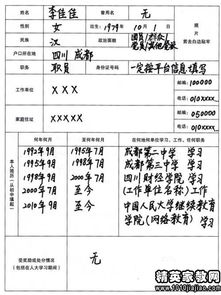 姓名 李佳佳 曾用名 无
性别 女 出生 1979年 10月 1日
民族 汉 政治面貌 团员/群众/党员/其他党派
户口所在地 四川 成都
职务 职员 身份证号码 一定按平台信息填写
工作单位 ××× 邮编 100000
电话
家庭住址 ××××× 邮编 050000
电话
本人简历(从初中填起)
何年何月 至何年何月 在何地何单位学习、工作、任何职务
1992年9月 1995年7月 成都第二中学 学习
1995年9月 1998年7月 成都第三中学 学习
1998年9月 2000年7月 四川财经学院 学习
2000年7月 至今 (工作单位名称)工作
2010年9月 至今 中国人民大学继续教育
学院(网络教育) 学习
受奖励或处分情况
(包括在人大学习期间)
无
精英家教网
www.1010jiajiao.com